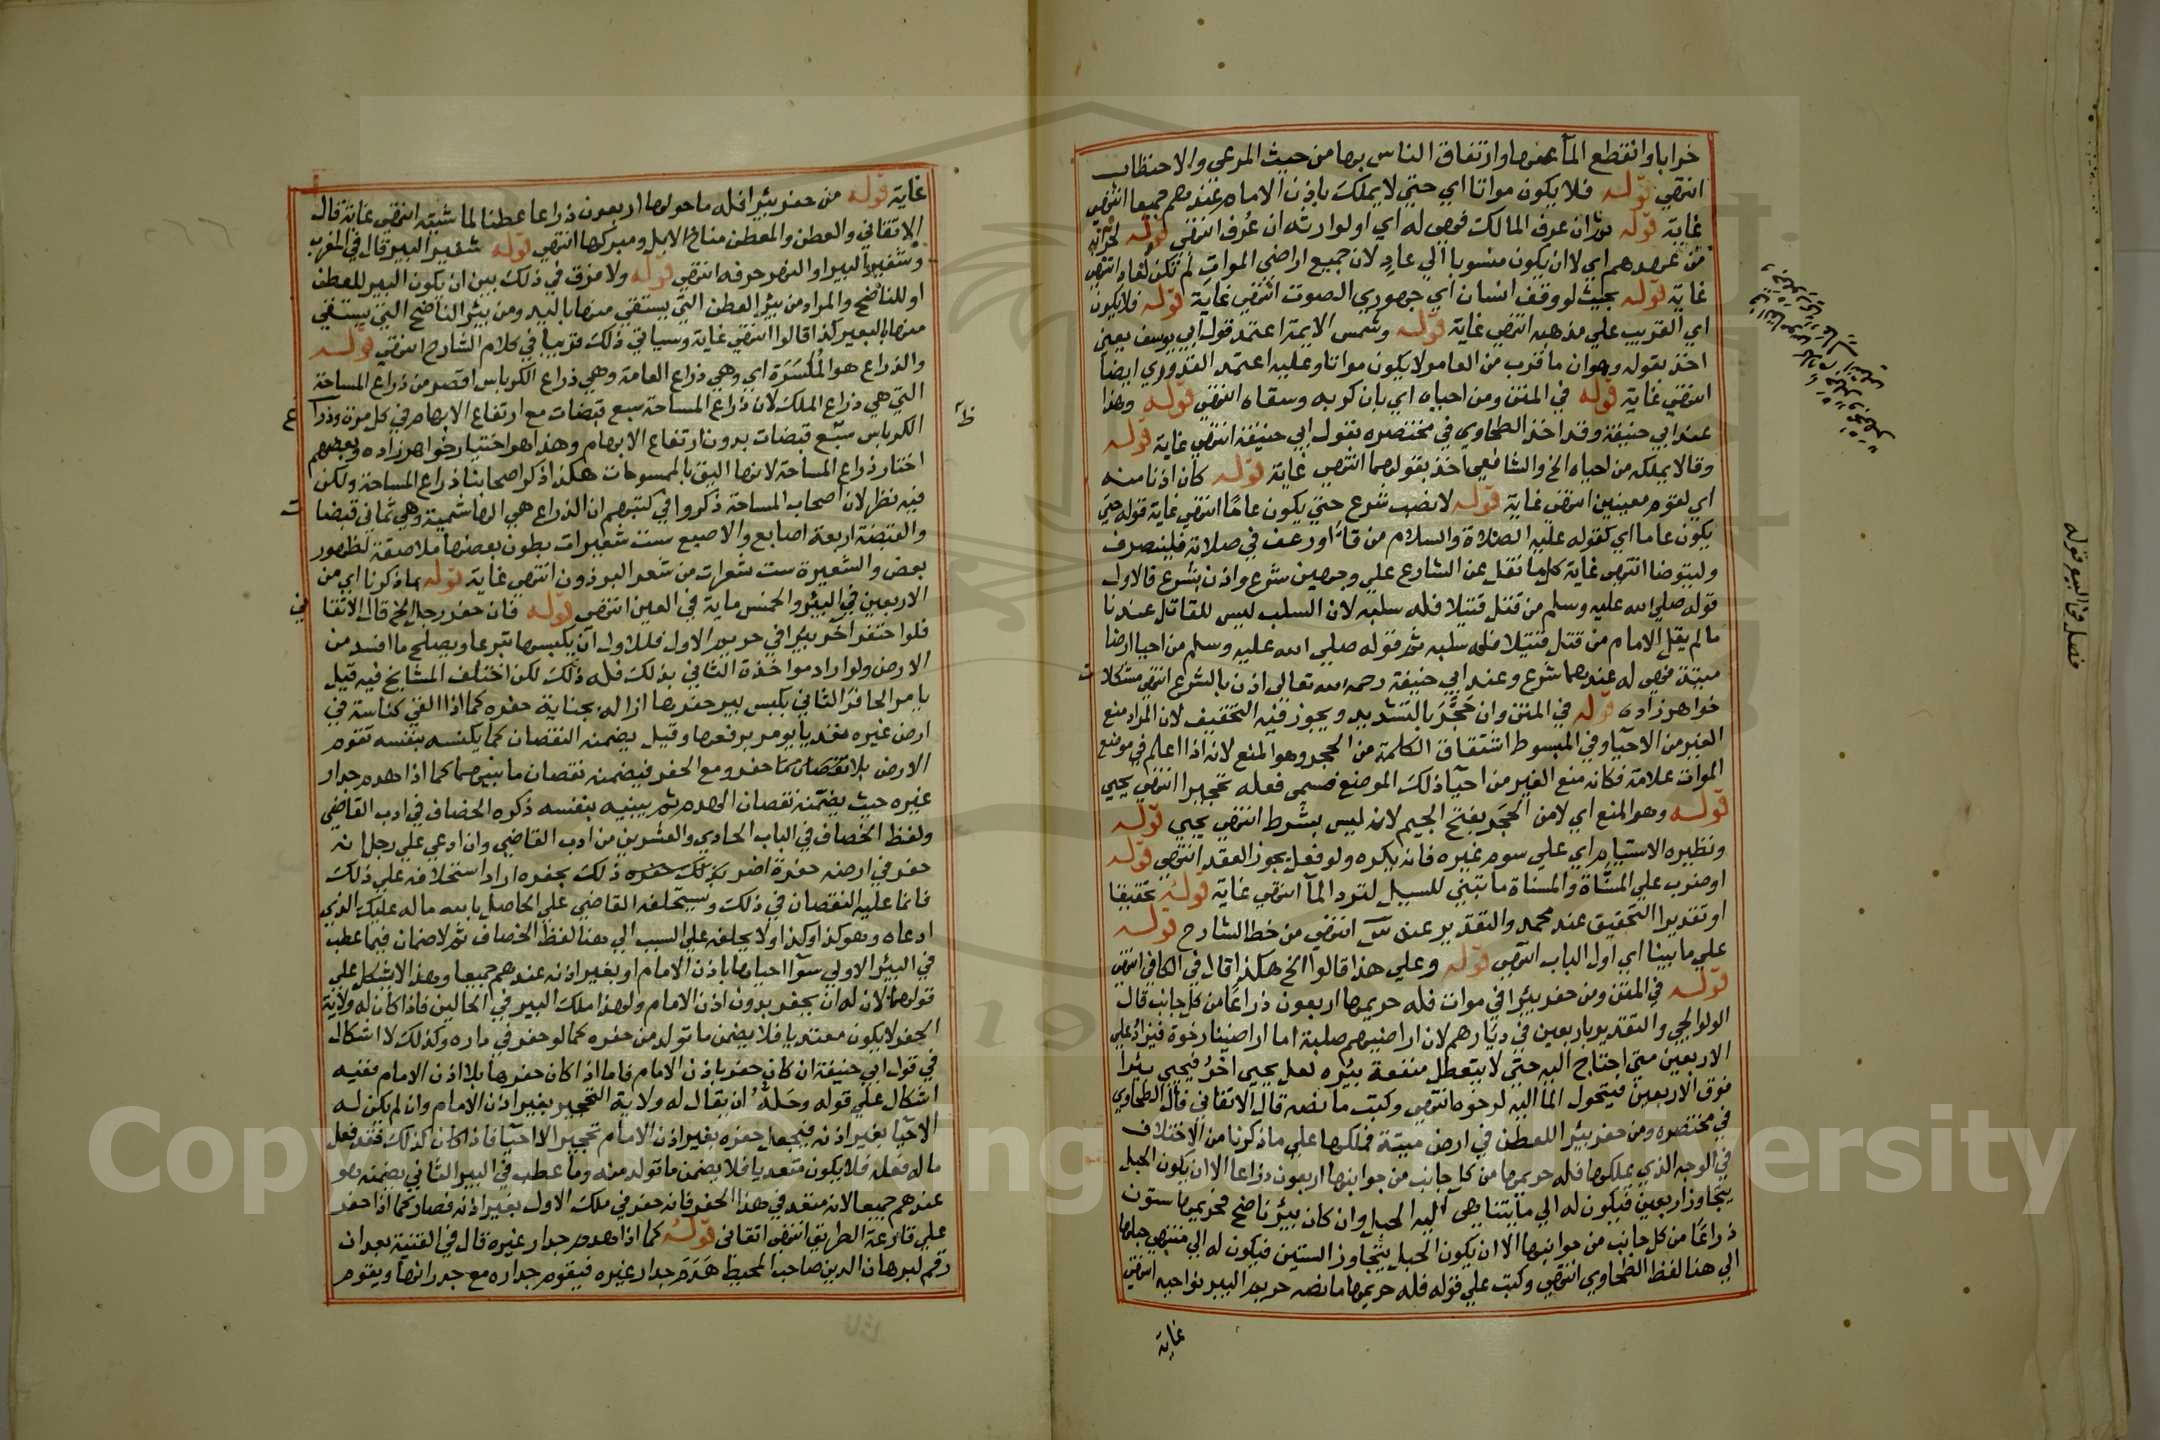 خرابا وانقطع المآ عنها وارتفاق الناس بها من حيث المرعي والاحتطاب
انتهي قوله فلا يكون مواتا اي حتي لا يملك باذن الامام عندهم جميعا انتهي
غاية قوله ثم ان عرف المالك فهي له اي او لوارثه ان عُرف انتهي قوله
من عهدهم اي لا ان يكون منسوبا الي عاد لان جميع اراضي الموات لم تكن لعاد انتهي
غاية قوله بحيث لو وقف انسان اي جهوري الصوت انتهي غاية قوله فلا يكون
اي القريب علي مذهبه انتهي غاية قوله وشمس الايمة اعتمد قول ابي يوسف يعني
اخذ بقوله وهو ان ما قرب من العامر لا يكون مواتا وعليه اعتمد القدوري ايضا
انتهي غاية قوله في المتن ومن احياه اي بان كربه وسقاه انتهي قوله وهذا
عند ابي حنيفة وقد اخذ الطحاوي في مختصره بقول ابي حنيفة انتهي غاية قوله
وقالا يملكه من احياه الخ والشافعي اخذ بقولهما انتهي غاية قوله كان اذنا منه
اي لقوم معينين انتهي غاية قوله لا نصب شرع حتي يكون عامًا انتهي غاية قوله حتي
يكون عاما اي كقوله عليه الصلاة والسلام من قآء او رعف في صلاته فلينصرف
وليتوضا انتهي غاية كلما نقل عن الشارع علي وجهين شرع واذن بشرع فالاول
قوله صلي الله عليه وسلم من قتل قتيلا فله سلبه لان السلب ليس للقاتل عندنا
ما لم يقل الامام من قتل قتيلا فله سلبه ثم قوله صلي الله عليه وسلم من احيا ارضا
ميتة فهي له عندهما شرع وعند ابي حنيفة رحمه الله تعالي اذن بالشرع انتهي مشكلات
خواهرزاده قوله في المتن وان حَجَّرَ بالتشديد ويجوز فيه التخفيف لان المراد منع
الغير من الاحيآ وفي المبسوط اشتقاق الكلمة من الحجر وهو المنع لانه اذا اعلم في موضع
الموات علامة فكانه منع الغير من احيآ ذلك الموضع فسمي فعله تحجيرا انتهي يحيي
قوله وهو المنع اي لا من الحَجَر بفتح الجيم لانه ليس بشرط انتهي يحيي قوله
ونظيره الاستيام اي علي سوم غيره فانه يكره ولو فعل يجوز العقد انتهي قوله
او ضرب علي المسناة والمسناة ما تبني للسيل لترد المآ انتهي غاية قوله تحقيقا
او تقديرا التحقيق عند محمد والتقدير عند س انتهي من خط الشارح قوله
علي ما بينا اي اول الباب انتهي قوله وعلي هذا قالوا الخ هكذا قال في الكافي انتهي
قوله في المتن ومن حفر بيرا في موات فله حريمها اربعون ذراعًا من كل جانب قال
الولوالجي والتقدير باربعين في ديارهم لان اراضيهم صلبة اما اراضينا رخوة فيزاد علي
الاربعين متي احتاج اليه حتي لا يتعطل منفعة بيره لعل يحيي اخرُ فيحيي بئرا
فوق الاربعين فيتحول المآ اليه لرخوها انتهي وكتب ما نصه قال الاتقاني قال الطحاوي
في مختصره ومن حفر بئرا للعطن في ارض ميتة فملكها علي ما ذكرنا من الاختلاف
في الوجه الذي يملكها فله حريمها من كل جانب من جوانبها اربعون ذراعا الا ان يكون الحبل
يتجاوز اربعين فيكون له الي ما يتناهي اليه الحبل وان كان بئر ناضح فحريمها ستون
ذراعًا من كل جانب من جوانبها الا ان يكون الحبل يتجاوز الستين فيكون له الي منتهي حبلها
الي هنا لفظ الطحاوي انتهي وكتب علي قوله فله حريمها ما نصه حريم البير نواحيه انتهي
غاية
فصل في البير قوله
غاية قوله من حفر بئرا فله ما حولها اربعون ذراعا عطنا لماشيته انتهي غاية قال
الاتقاني والعطن والمعطن مناخ الابل ومبركها انتهي قوله شفير البير قال في المغرب
وشفير البير او النهر حرفه انتهي قوله ولا فرق في ذلك بين ان يكون البير للعطن
او للناضح والمراد من بئر العطن التي يستقي منها باليد ومن بئر الناضح التي يستقي
منها بالبعير كذا قالوا انتهي غاية وسياتي ذلك قريبا في كلام الشارح انتهي قوله
والذراع هو المُكَسَّرَة اي وهي ذراع العامة وهي ذراع الكرباس اقصر من ذراع المساحة
التي هي ذراع الملك لان ذراع المساحة سبع قبضات مع ارتفاع الابهام في كل مرة وذراع
الكرباس سبع قبضات بدون ارتفاع الابهام وهذا هو اختيار خواهرزاده وبعضهم
اختار ذراع المساحة لانها اليق بالممسوحات هكذا ذكر اصحابنا ذراع المساحة ولكن
فيه نظر لان اصحاب المساحة ذكروا في كتبهم ان الذراع هي الهاشمية وهي ثماني قبضات
والقبضة اربعة اصابع والاصبع ست شعيرات بطون بعضها ملاصقة لظهور
بعض والشعيرة ست شعرات من شعر البرذون انتهي غاية قوله بما ذكرنا اي من
الاربعين في البئر والخمس ماية في العين انتهي قوله فان حفر رجل الخ قال الاتقاني
فلو احتفر اخر بيرا في حريم الاول فللاول ان يكبسها تبرعا ويصلح ما افسد من
الارض ولو اراد مواخذة الثاني بذلك فله ذلك لكن اختلف المشايخ فيه قيل
يامر الحافر الثاني بكبس بير حفرها ازاله بجناية حفره كما اذا القي كناسة في
ارض غيره متعديا يومر برفعها وقيل يضمنه النقصان كما يكنسه بنفسه تقوم
الارض بلا نقصان ما حفر ومع الحفر فيضمنه نقصان ما بينهما كما اذا هدم جدار
غيره حيث يضمنه نقصان الهدم ثم يبنيه بنفسه ذكره الخصاف في ادب القاضي
ولفظ الخصاف في الباب الحادي والعشرين من ادب القاضي وان ادعي علي رجل انه
حفر في ارضه حفرة اضر بذلك حفره ذلك بحفره اراد استحلافه علي ذلك
فانما عليه النقصان في ذلك وسيحلفه القاضي علي الحاصل بالله ما له عليك الذي
ادعاه وهو كذا وكذا ولا يحلفه علي السبب الي هنا لفظ الخصاف ثم لا ضمان فيما عطب
في البئر الاولي سوآ احياها باذن الامام او بغير اذنه عندهم جميعا وهذا لا يشكل علي
قولهما لان له ان يحفر بدون اذن الامام ولهذا ملك البير في الحالين فاذا كان له ولاية
الحفر لا يكون معتديا فلا يضمن ما تولد من حفره كما لو حفر في داره وكذلك لا اشكال
في قول ابي حنيفة ان كان حفر باذن الامام فاما اذا كان حفرها بلا اذن الامام ففيه
اشكال علي قوله وحَلُّهُ ان يقال له ولاية التحجير بغير اذن الامام وان لم يكن له
الاحيآ بغير اذنه فيجعل حفره بغير اذن الامام تحجيرا لا احيآ فاذا كان كذلك فقد فعل
ما له فعله فلا يكون متعديا فلا يضمن ما تولد منه وما عطب في البير الثاني يضمنه هو
عندهم جميعا لانه متعد في هذا الحفر فانه حفر في ملك الاول بغير اذنه فصار كما اذا حفر
علي قارعة الطريق انتهي اتقاني قوله كما اذا هدم جدار غيره قال في القنية بعد ان
رقم لبرهان الدين صاحب المحيط هَدَمَ جدار غيره فيقوم جداره مع جدرانها ويقوم
Copyright King University